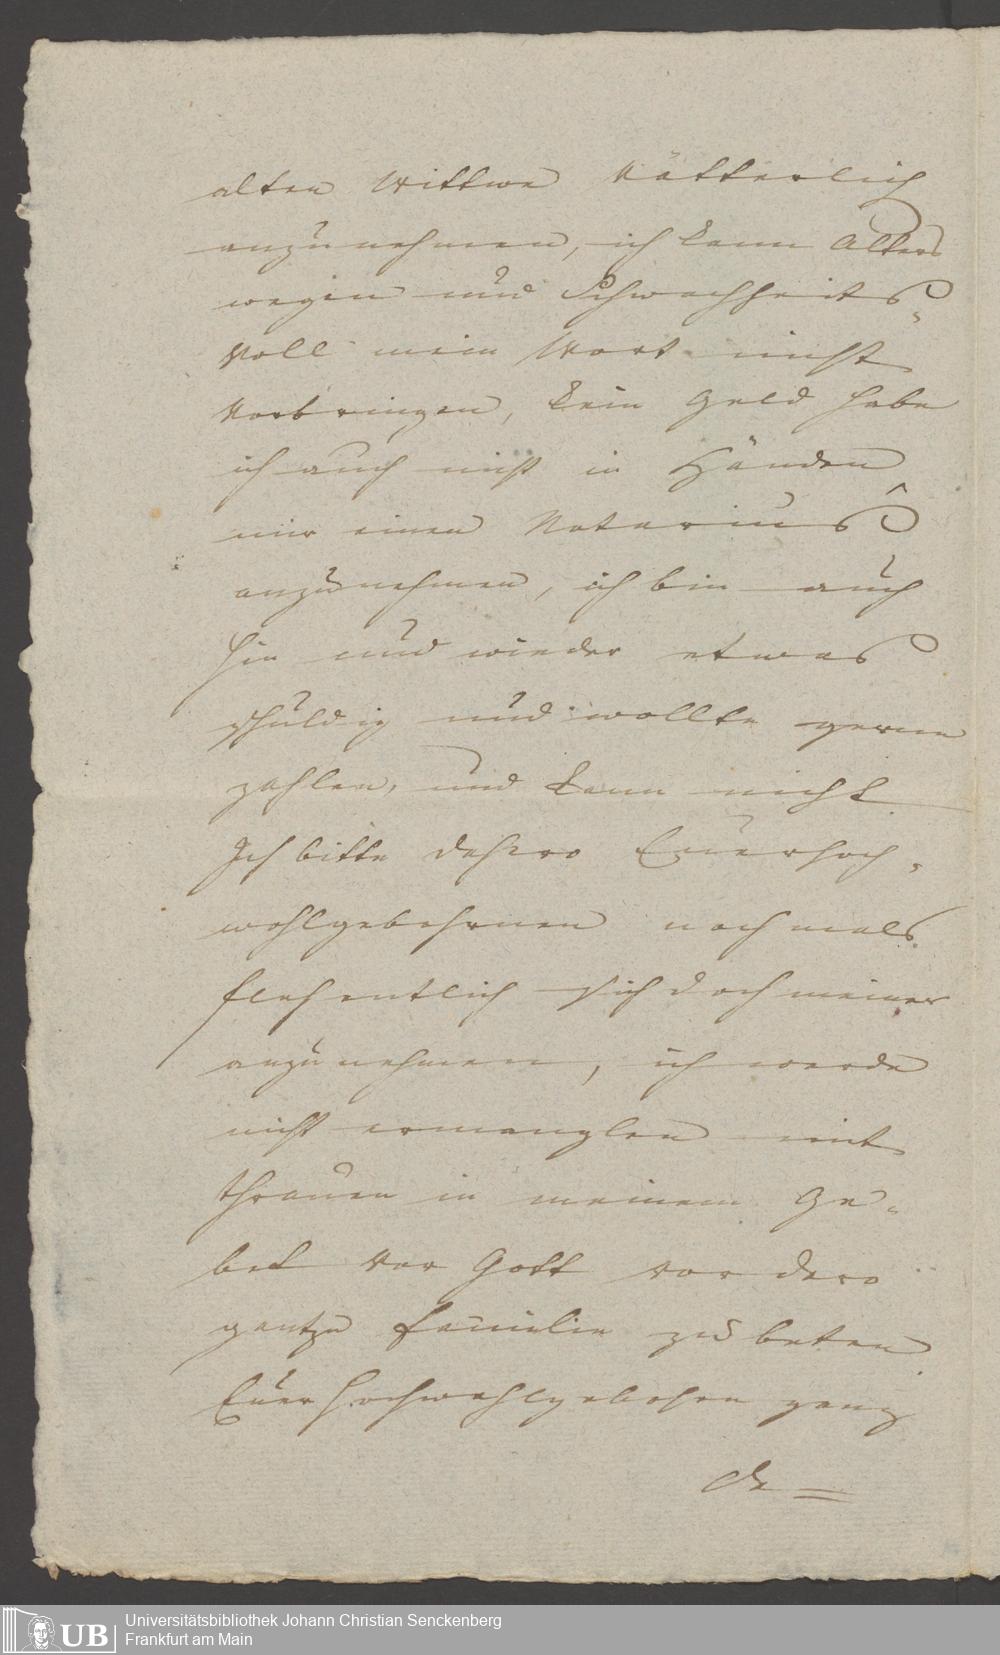 alten Wittwe Vätterlich
anzunehmen, ich kann Alters
wegen und Schwachheits
voll mein Wort nicht
Vorbringen, kein Geld habe
ich auch nicht in Händen
mir einen Notarius
anzunehmen, ich bin auch
hin und wieder etwas
schuldig und wollte gerne
zahlen, und kann nicht
Ich bitte dahero Euerhoch-
wohlgebohrnen nochmals
flehentlich sich doch meiner
anzunehmen, ich werde
nicht ermanglen mit
thränen in meinem Ge-
bet vor Gott vor dero
gantze familie zu beten
Euer Hochwohlgebohrn
de=
UB Universitätsbibliothek Johann Christian Senckenberg
Frankfurt am Main